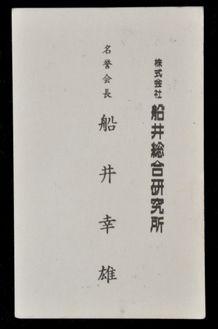 株式会社 船井総合研究所
名誉会長
船井幸雄